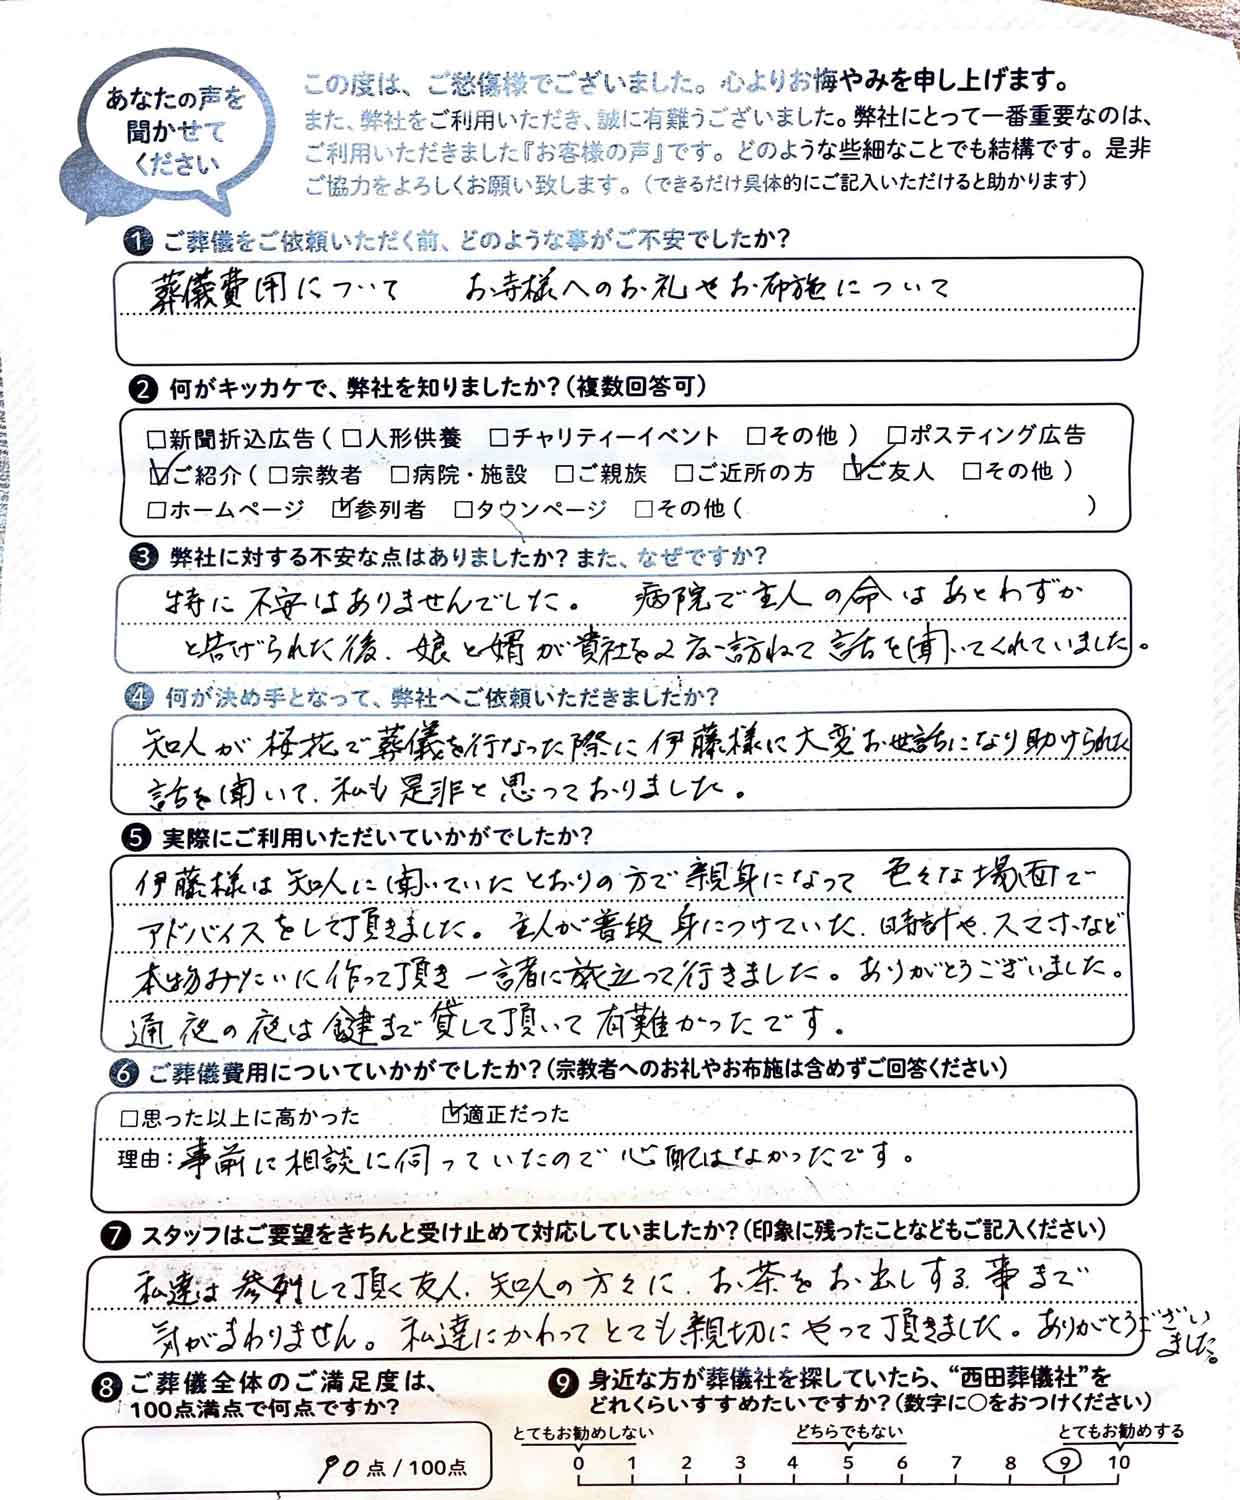 あなたの声を
聞かせて
ください
この度は、ご愁傷様でございました。心よりお悔やみを申し上げます。
また、弊社をご利用いただき、誠に有難うございました。弊社にとって一番重要なのは、
ご利用いただきました『お客様の声』です。どのような些細なことでも結構です。是非
ご協力をよろしくお願い致します。（できるだけ具体的にご記入いただけると助かります）
❶ ご葬儀をご依頼いただく前、どのような事がご不安でしたか？
葬儀費用について　お寺様へのお礼やお布施について
❷ 何がキッカケで、弊社を知りましたか？（複数回答可）
□新聞折込広告（ □人形供養 □チャリティーイベント □その他 ） □ポスティング広告
☑ご紹介（ □宗教者 □病院・施設 □ご親族 □ご近所の方 ☑ご友人 □その他 ）
□ホームページ ☑参列者 □タウンページ □その他（　　　）
❸ 弊社に対する不安な点はありましたか？また、なぜですか？
特に不安はありませんでした。　病院で主人の命はあとわずか
と告げられた後、娘と婿が貴社を2度訪ねて話を聞いてくれていました。
❹ 何が決め手となって、弊社へご依頼いただきましたか？
知人が桜花で葬儀を行なった際に伊藤様に大変お世話になり助けられた
話を聞いて、私も是非と思っておりました。
❺ 実際にご利用いただいていかがでしたか？
伊藤様は知人に聞いていたとおりの方で親身になって 色々な場面で
アドバイスをして頂きました。主人が普段身につけていた、時計や、スマホなど
本物みたいに作って頂き一諸に旅立って行きました。ありがとうございました。
通夜の夜は鍵まで貸して頂いて有難かったです。
❻ ご葬儀費用についていかがでしたか？（宗教者へのお礼やお布施は含めずご回答ください）
□思った以上に高かった　☑適正だった
理由：事前に相談に伺っていたので心配はなかったです。
❼ スタッフはご要望をきちんと受け止めて対応していましたか？（印象に残ったことなどもご記入ください）
私達は参列して頂く友人、知人の方々に、お茶をお出しする事まで
気がまわりません。私達にかわってとても親切にやって頂きました。ありがとうござい
ました。
❽ ご葬儀全体のご満足度は、
100点満点で何点ですか？
90点 / 100点
❾ 身近な方が葬儀社を探していたら、“西田葬儀社”を
どれくらいすすめたいですか？（数字に○をおつけください）
とてもお勧めしない　どちらでもない　とてもお勧めする
0 1 2 3 4 5 6 7 8 9 10